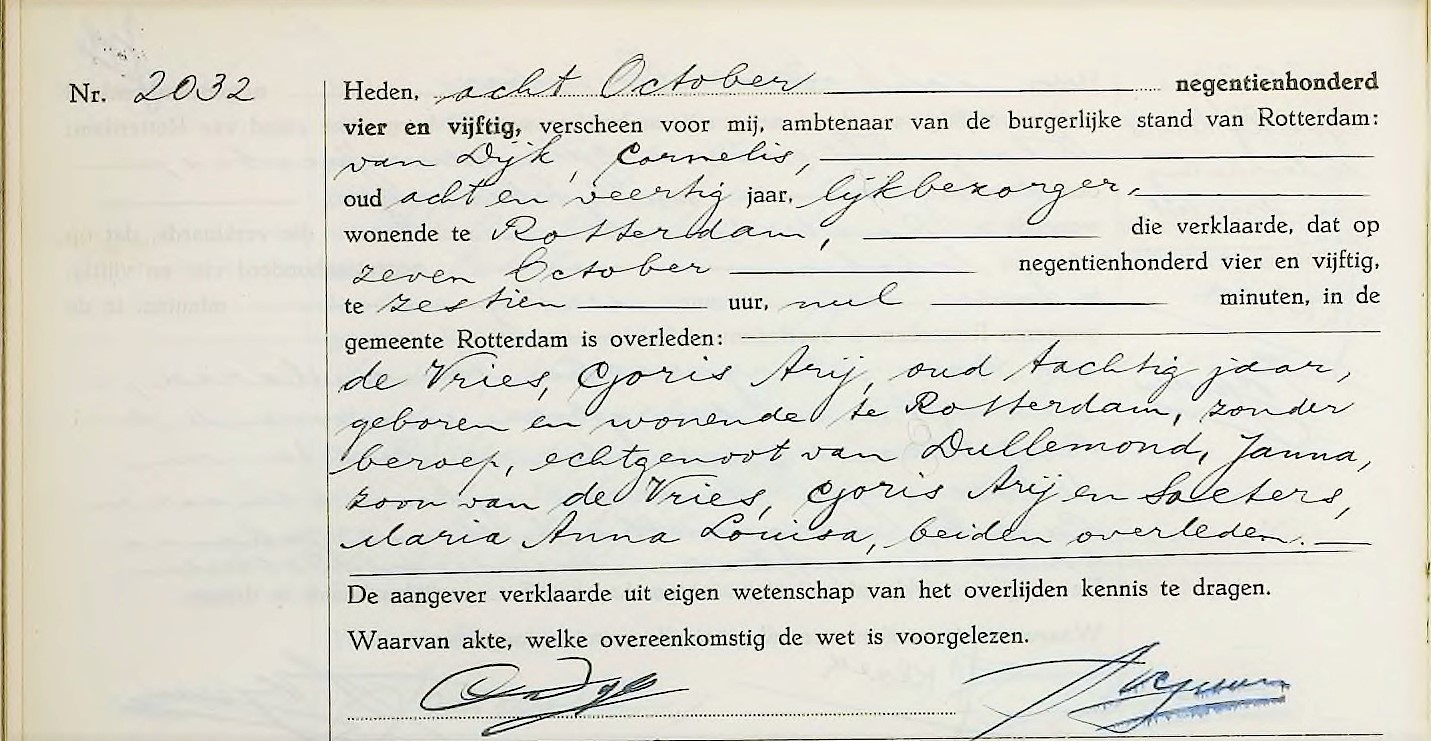 Nr. 2032
Heden, acht October negentienhonderd
vier en vijftig, verscheen voor mij, ambtenaar van de burgerlijke stand van Rotterdam:
van Dijk, Cornelis,
oud acht en veertig jaar, lijkbezorger,
wonende te Rotterdam, die verklaarde, dat op
zeven October negentienhonderd vier en vijftig,
te zestien uur, nul minuten, in de
gemeente Rotterdam is overleden:
de Vries, Gjoris Arij, oud tachtig jaar,
geboren en wonende te Rotterdam, zonder
beroep, echtgenoot van Dullemond, Janna,
zoon van de Vries, Gjoris Arij en Soeters,
Maria Anna Louisa, beiden overleden.
De aangever verklaarde uit eigen wetenschap van het overlijden kennis te dragen.
Waarvan akte, welke overeenkomstig de wet is voorgelezen.